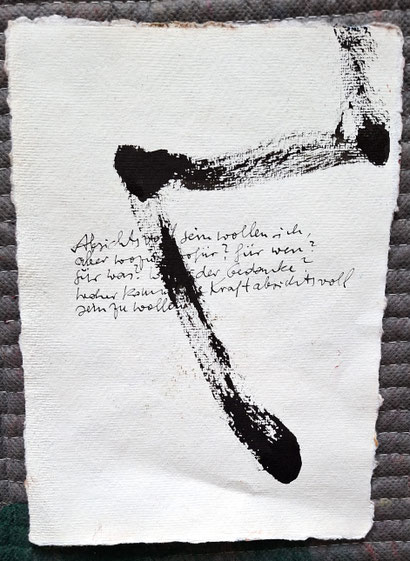 Absichtsvoll sein wollen ich,
aber wozu? wofür? für wen?
für was? der Gedanke?
woher Kraft absichtsvoll
sein zu wollen